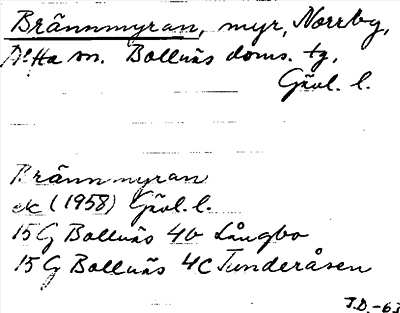 Brännmyran, myr, Norrby,
Alfta sn. Bollnäs doms. tg,
Gävl. l.
Brännmyran
ek (1958) Gävl. l.
15G Bollnäs 4b Långbo
15G Bollnäs 4C Tunderåsen
J.D.-63